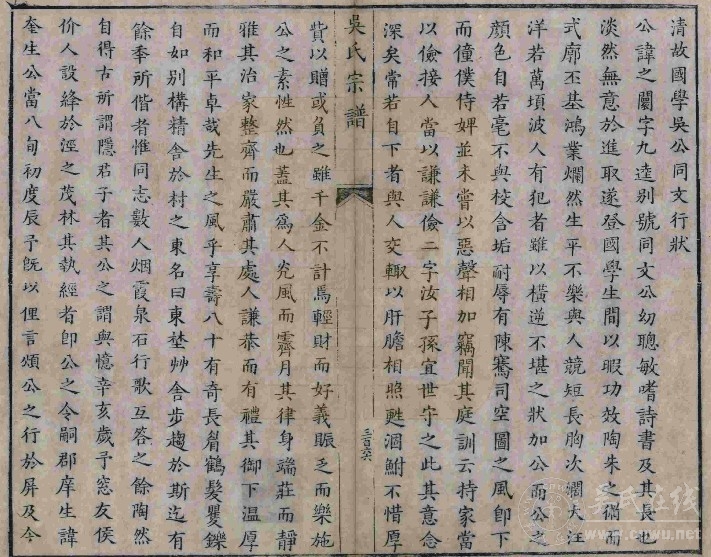 清故國學吳公同文行狀
公諱之闌字九逵別號同文公幼聰敏嗜詩書及其長也
淡然無意於進取遂登國學生間以暇功效陶朱之術而
式廓丕基鴻業爛然生平不樂與人競短長胸次濶大汪
洋若萬頃波人有犯者雖以橫逆不堪之狀加公而公之
顏色自若毫不與校含垢耐辱有陳騫司空圖之風即下
而僮僕侍婢並未嘗以惡聲相加竊聞其庭訓云持家當
以儉接人當以謙謙儉二字汝子孫宜世守之此其意念
深矣常若自下者與人交輙以肝膽相照甦涸鮒不惜厚
吳氏宗譜
貲以贈或負之雖千金不計焉輕財而好義賑乏而樂施
公之素性然也蓋其爲人光風而霽月其律身端莊而靜
雅其治家整齊而嚴肅其處人謙恭而有禮其御下温厚
而和平卓哉先生之風乎享壽八十有奇長眉鶴髮矍鑠
自如别構精舍於村之東名曰東埜艸舍步趨於斯迄有
餘年所偕者惟同志數人烟霞泉石行歌互答之餘陶然
自得古所謂隱君子者其公之謂與憶辛亥歲予窓友侯
价人設絳於涇之茂林其執經者即公之令嗣郡庠生諱
奎生公當八旬初度辰予旣以俚言頌公之行於屏及今
吳氏在线
cnwu.net